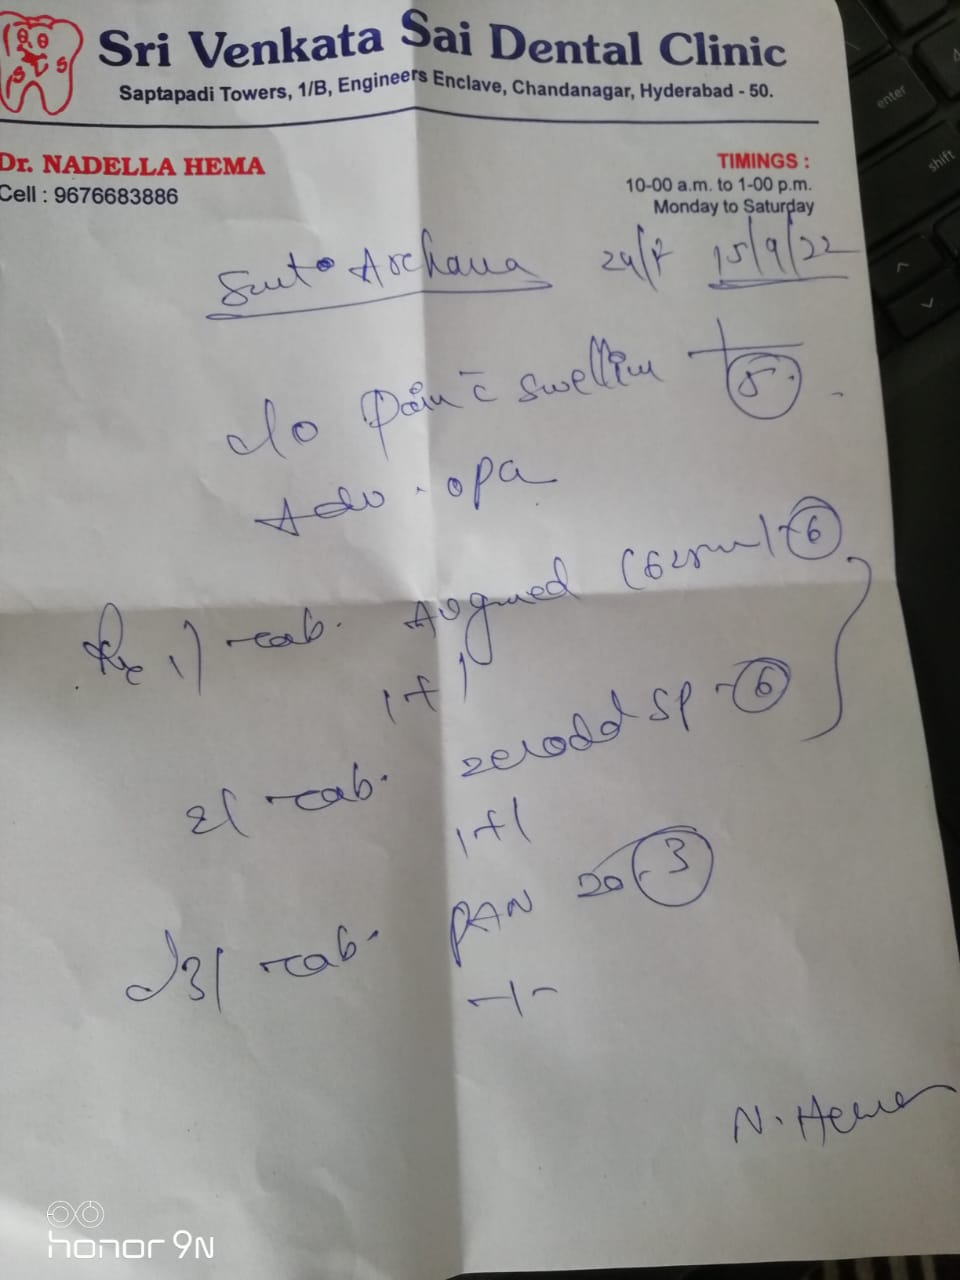 Sri Venkata Sai Dental Clinic
Saptapadi Towers, 1/B, Engineers Enclave, Chandanagar, Hyderabad - 50.
Dr. NADELLA HEMA
Cell : 9676683886
TIMINGS :
10-00 a.m. to 1-00 p.m.
Monday to Saturday
Smt. Archana 24/F 15/9/22
c/o Pain c̄ swelling 8
Adv. OPG
Rx 1) Tab. Augmed (625mg) - 6
1+1
2) Tab. Zerodol SP - 6
1+1
3) Tab. PAN 20 - 3
-1-
N. Hema
honor 9N